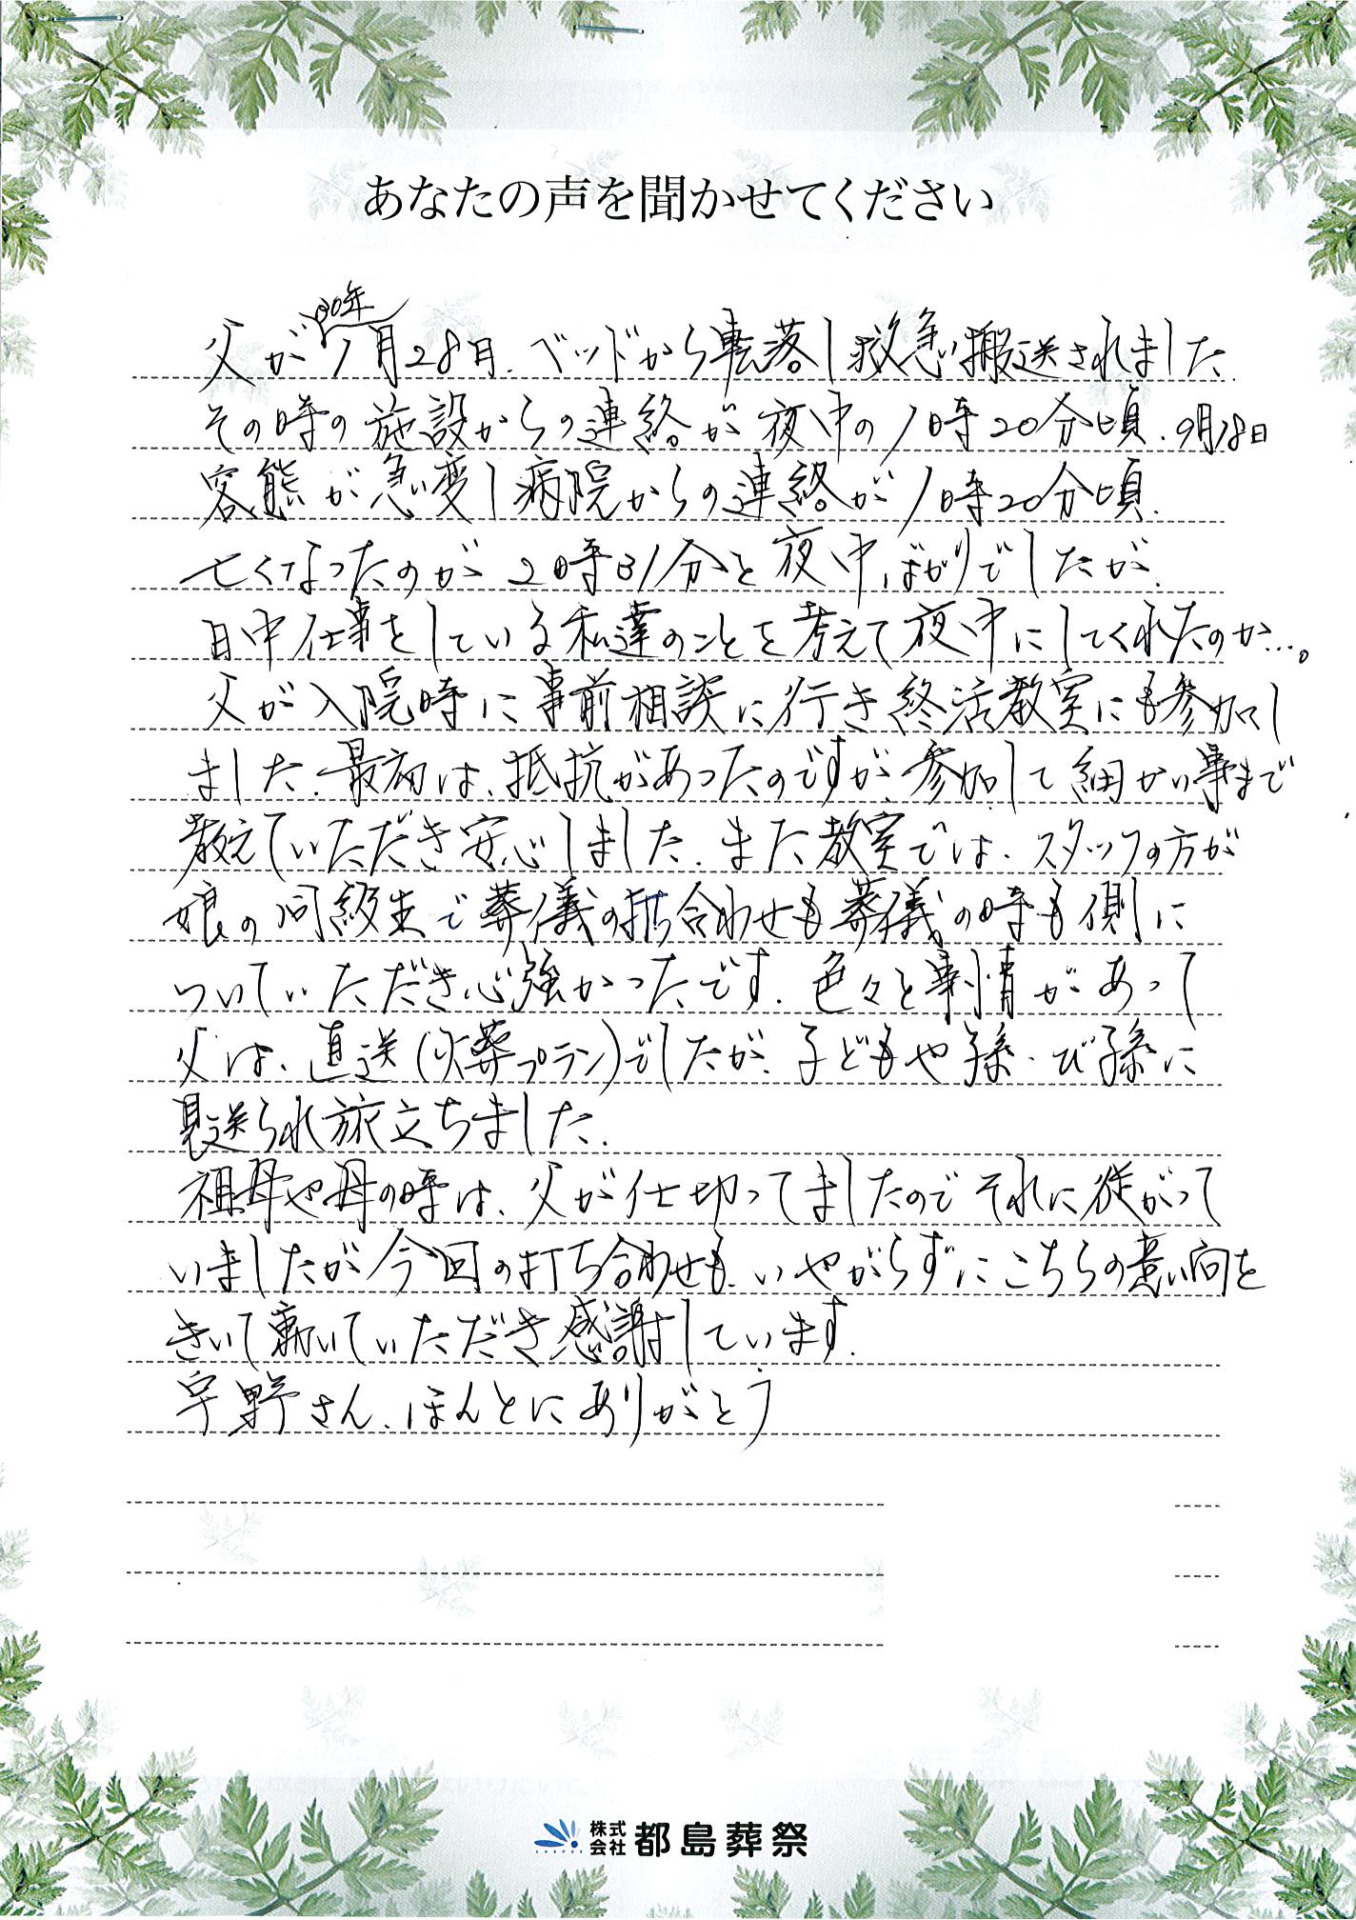 あなたの声を聞かせてください
30年
父が1月28日、ベッドから転落し救急搬送されました
その時の施設からの連絡が夜中の1時20分頃、9月18日
容態が急変し病院からの連絡が1時20分頃、
亡くなったのが2時31分と夜中ばかりでしたが、
日中仕事をしている私達のことを考えて夜中にしてくれたのか…。
父が入院時に事前相談に行き終活教室にも参加し
ました。最初は、抵抗があったのですが、参加して細かい事まで
教えていただき安心しました。また教室では、スタッフの方が
娘の同級生で葬儀の打ち合わせも葬儀の時も側に
ついていただき心強かったです。色々と事情があって
父は、直送(火葬プラン)でしたが、子どもや孫・ひ孫に
見送られ旅立ちました。
祖母や母の時は、父が仕切ってましたのでそれに従がって
いましたが今回の打ち合わせも、いやがらずにこちらの意向を
きいて動いていただき感謝しています。
宇野さん、ほんとにありがとう
株式会社 都島葬祭